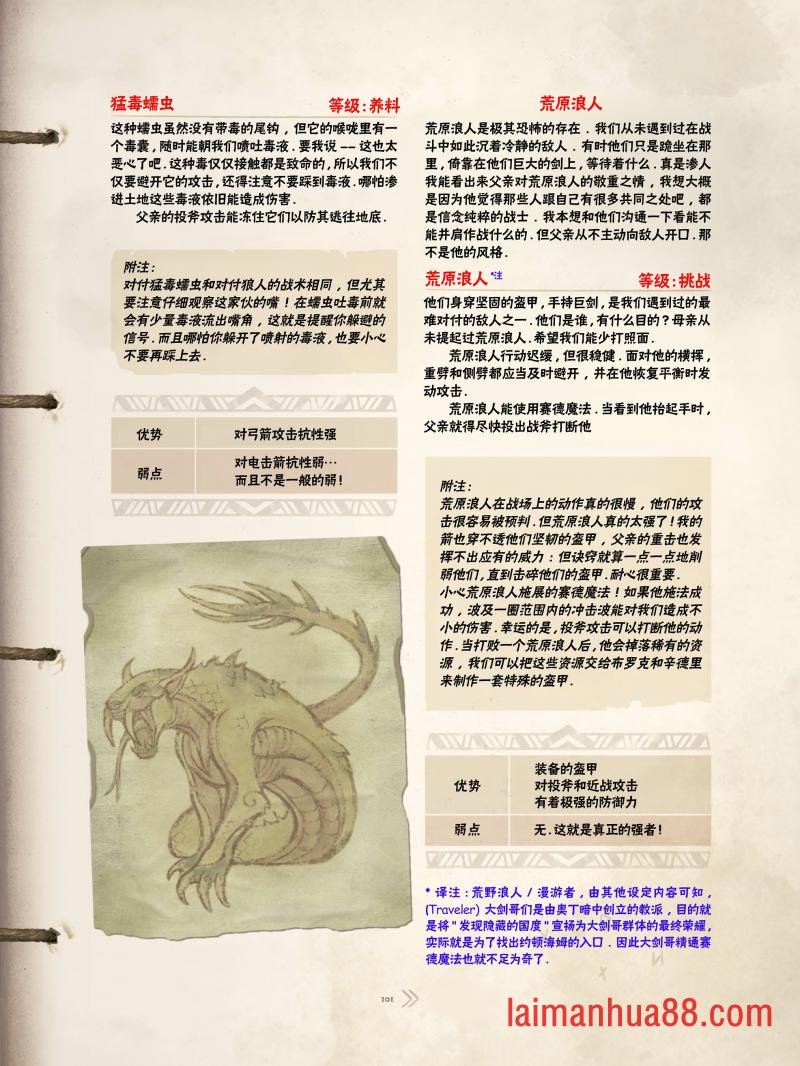 猛毒蠕虫 等级:养料
这种蠕虫虽然没有带毒的尾钩,但它的喉咙里有一
个毒囊,随时能朝我们喷吐毒液.要我说--这也太
恶心了吧.这种毒仅仅接触都是致命的,所以我们不
仅要避开它的攻击,还得注意不要踩到毒液.哪怕渗
进土地这些毒液依旧能造成伤害.
父亲的投斧攻击能冻住它们以防其逃往地底.
附注:
对付猛毒蠕虫和对付狼人的战术相同,但尤其
要注意仔细观察这家伙的嘴!在蠕虫吐毒前就
会有少量毒液流出嘴角,这就是提醒你躲避的
信号.而且哪怕你躲开了喷射的毒液,也要小心
不要再踩上去.
优势 对弓箭攻击抗性强
弱点 对电击箭抗性弱…
而且不是一般的弱!
荒原浪人
荒原浪人是极其恐怖的存在.我们从未遇到过在战
斗中如此沉着冷静的敌人.有时他们只是跪坐在那
里,倚靠在他们巨大的剑上,等待着什么.真是渗人
我能看出来父亲对荒原浪人的敬重之情,我想大概
是因为他觉得那些人跟自己有很多共同之处吧,都
是信念纯粹的战士.我本想和他们沟通一下看能不
能并肩作战什么的.但父亲从不主动向敌人开口.那
不是他的风格.
荒原浪人*注 等级:挑战
他们身穿坚固的盔甲,手持巨剑,是我们遇到过的最
难对付的敌人之一.他们是谁,有什么目的?母亲从
未提起过荒原浪人.希望我们能少打照面.
荒原浪人行动迟缓,但很稳健.面对他的横挥,
重劈和侧劈都应当及时避开,并在他恢复平衡时发
动攻击.
荒原浪人能使用赛德魔法.当看到他抬起手时,
父亲就得尽快投出战斧打断他
附注:
荒原浪人在战场上的动作真的很慢,他们的攻
击很容易被预判.但荒原浪人真的太强了!我的
箭也穿不透他们坚韧的盔甲,父亲的重击也发
挥不出应有的威力:但诀窍就算一点一点地削
弱他们,直到击碎他们的盔甲.耐心很重要.
小心荒原浪人施展的赛德魔法!如果他施法成
功,波及一圈范围内的冲击波能对我们造成不
小的伤害.幸运的是,投斧攻击可以打断他的动
作.当打败一个荒原浪人后,他会掉落稀有的资
源,我们可以把这些资源交给布罗克和辛德里
来制作一套特殊的盔甲.
优势 装备的盔甲
对投斧和近战攻击
有着极强的防御力
弱点 无.这就是真正的强者!
* 译注:荒野浪人 / 漫游者,由其他设定内容可知,
(Traveler) 大剑哥们是由奥丁暗中创立的教派,目的就
是将"发现隐藏的国度"宣扬为大剑哥群体的最终荣耀,
实际就是为了找出约顿海姆的入口.因此大剑哥精通赛
德魔法也就不足为奇了.
101
laimanhua88.com